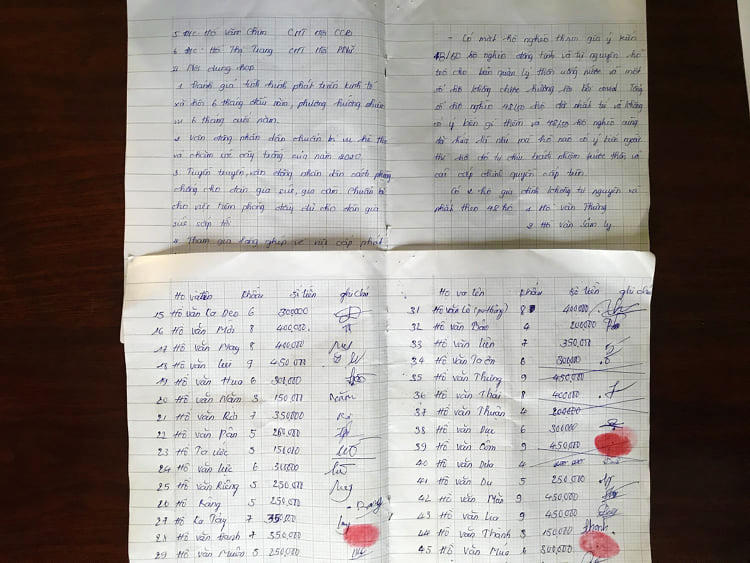 5 Đ/c: Hồ Văn Chưn CHT Hội CCB
6 Đ/c: Hồ Thị Trang CHT Hội PNVN
II Nội dung họp
1 Đánh giá tình hình phát triển kinh tế
xã hội 6 tháng đầu năm, phương hướng
6 tháng cuối năm.
2 Vận động nhân dân chuẩn bị vụ hè thu
và chăm sóc cây trồng của năm 2020
3 Tuyên truyền, vận động nhân dân cách phòng
chống cho đàn gia súc, gia cầm chuẩn bị
cho việc tiêm phòng đầy đủ cho đàn gia
súc sắp tới
4 Tham gia lồng ghép về cấp phát
- Có một hộ nghèo tham gia ý kiến
48/50 hộ nghèo đồng tình và tự nguyện hỗ
trợ cho ban quản lý thôn uống nước và một
số hộ không được hưởng hỗ trợ covid. Tổng
số hộ nghèo 48/50 hộ đã nhất trí và không
có ý kiến gì thêm và 48/50 hộ nghèo cùng
hộ nào có ý kiến ngoài
thì hộ đó tự chịu trách nhiệm trước thôn và
các cấp chính quyền cấp trên
Có 2 hộ gia đình không tự nguyện và
nhất theo 48 hộ 1 Hồ Văn Thưng
2 Hồ Văn Sâm ly
Họ và tên Khẩu Số tiền ghi chú
15 Hồ Văn Ca Deo 6 300000
16 Hồ Văn Mới 8 400000.
17 Hồ Văn May 8 400000
18 Hồ Văn Lưi 9 450000
19 Hồ Văn Hua 6 300000
20 Hồ Văn Năm 3 150000 Năm
21 Hồ Văn Rời 7 350000
22 Hồ Văn Pân 5 250000
23 Hồ Ta ước 3 150000
24 Hồ Văn Lức 6 300000
25 Hồ Văn Riêng 5 250000
26 Hồ Băng 5 250000
27 Hồ Ra Táy 7 350000
28 Hồ Văn Đanh 7 350000
29 Hồ Văn Muôn 5 250000
Họ và tên Khẩu Số tiền ghi chú
31 Hồ Văn Lô 8 400000
32 Hồ Văn Bân 4 200000
33 Hồ Văn Liên 7 350000
34 Hồ Văn Tơ ơn 6 300000
35 Hồ Văn Thưng 9 450000
36 Hồ Văn Thái 8 400000
37 Hồ Văn Thuân 4 200000
38 Hồ Văn Dục 6 300000
39 Hồ Văn Côn 9 450000
40 Hồ Văn Dứa 4
41 Hồ Văn Du 5 250000
42 Hồ Văn Mằn 9 450000
43 Hồ Văn Lia 9 450000
44 Hồ Văn Thành 3 150000 Thành
45 Hồ Văn Múa 6 300000